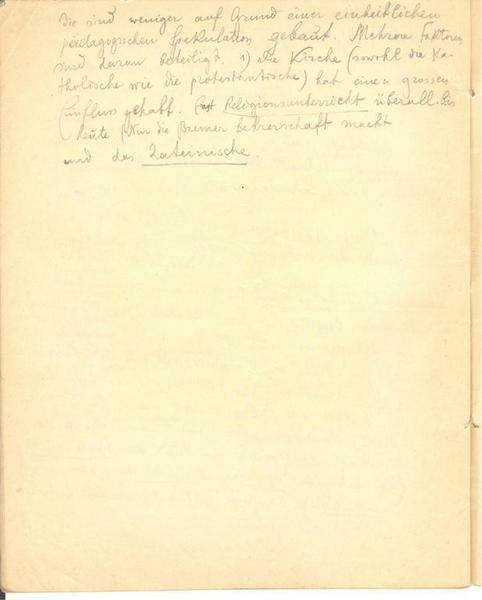 Die sind weniger auf Grund einer einheitlichen
pädagogischen Spekulation gebaut. Mehrere Faktoren
sind daran beteiligt. 1) die Kirche (sowohl die Ka-
tholische wie die protestantische) hat einen grossen
Einfluss gehabt. (fast Religionsunterricht überall. bis
heute Nur die Bremer Lehrerschaft macht
und das Lateinische.